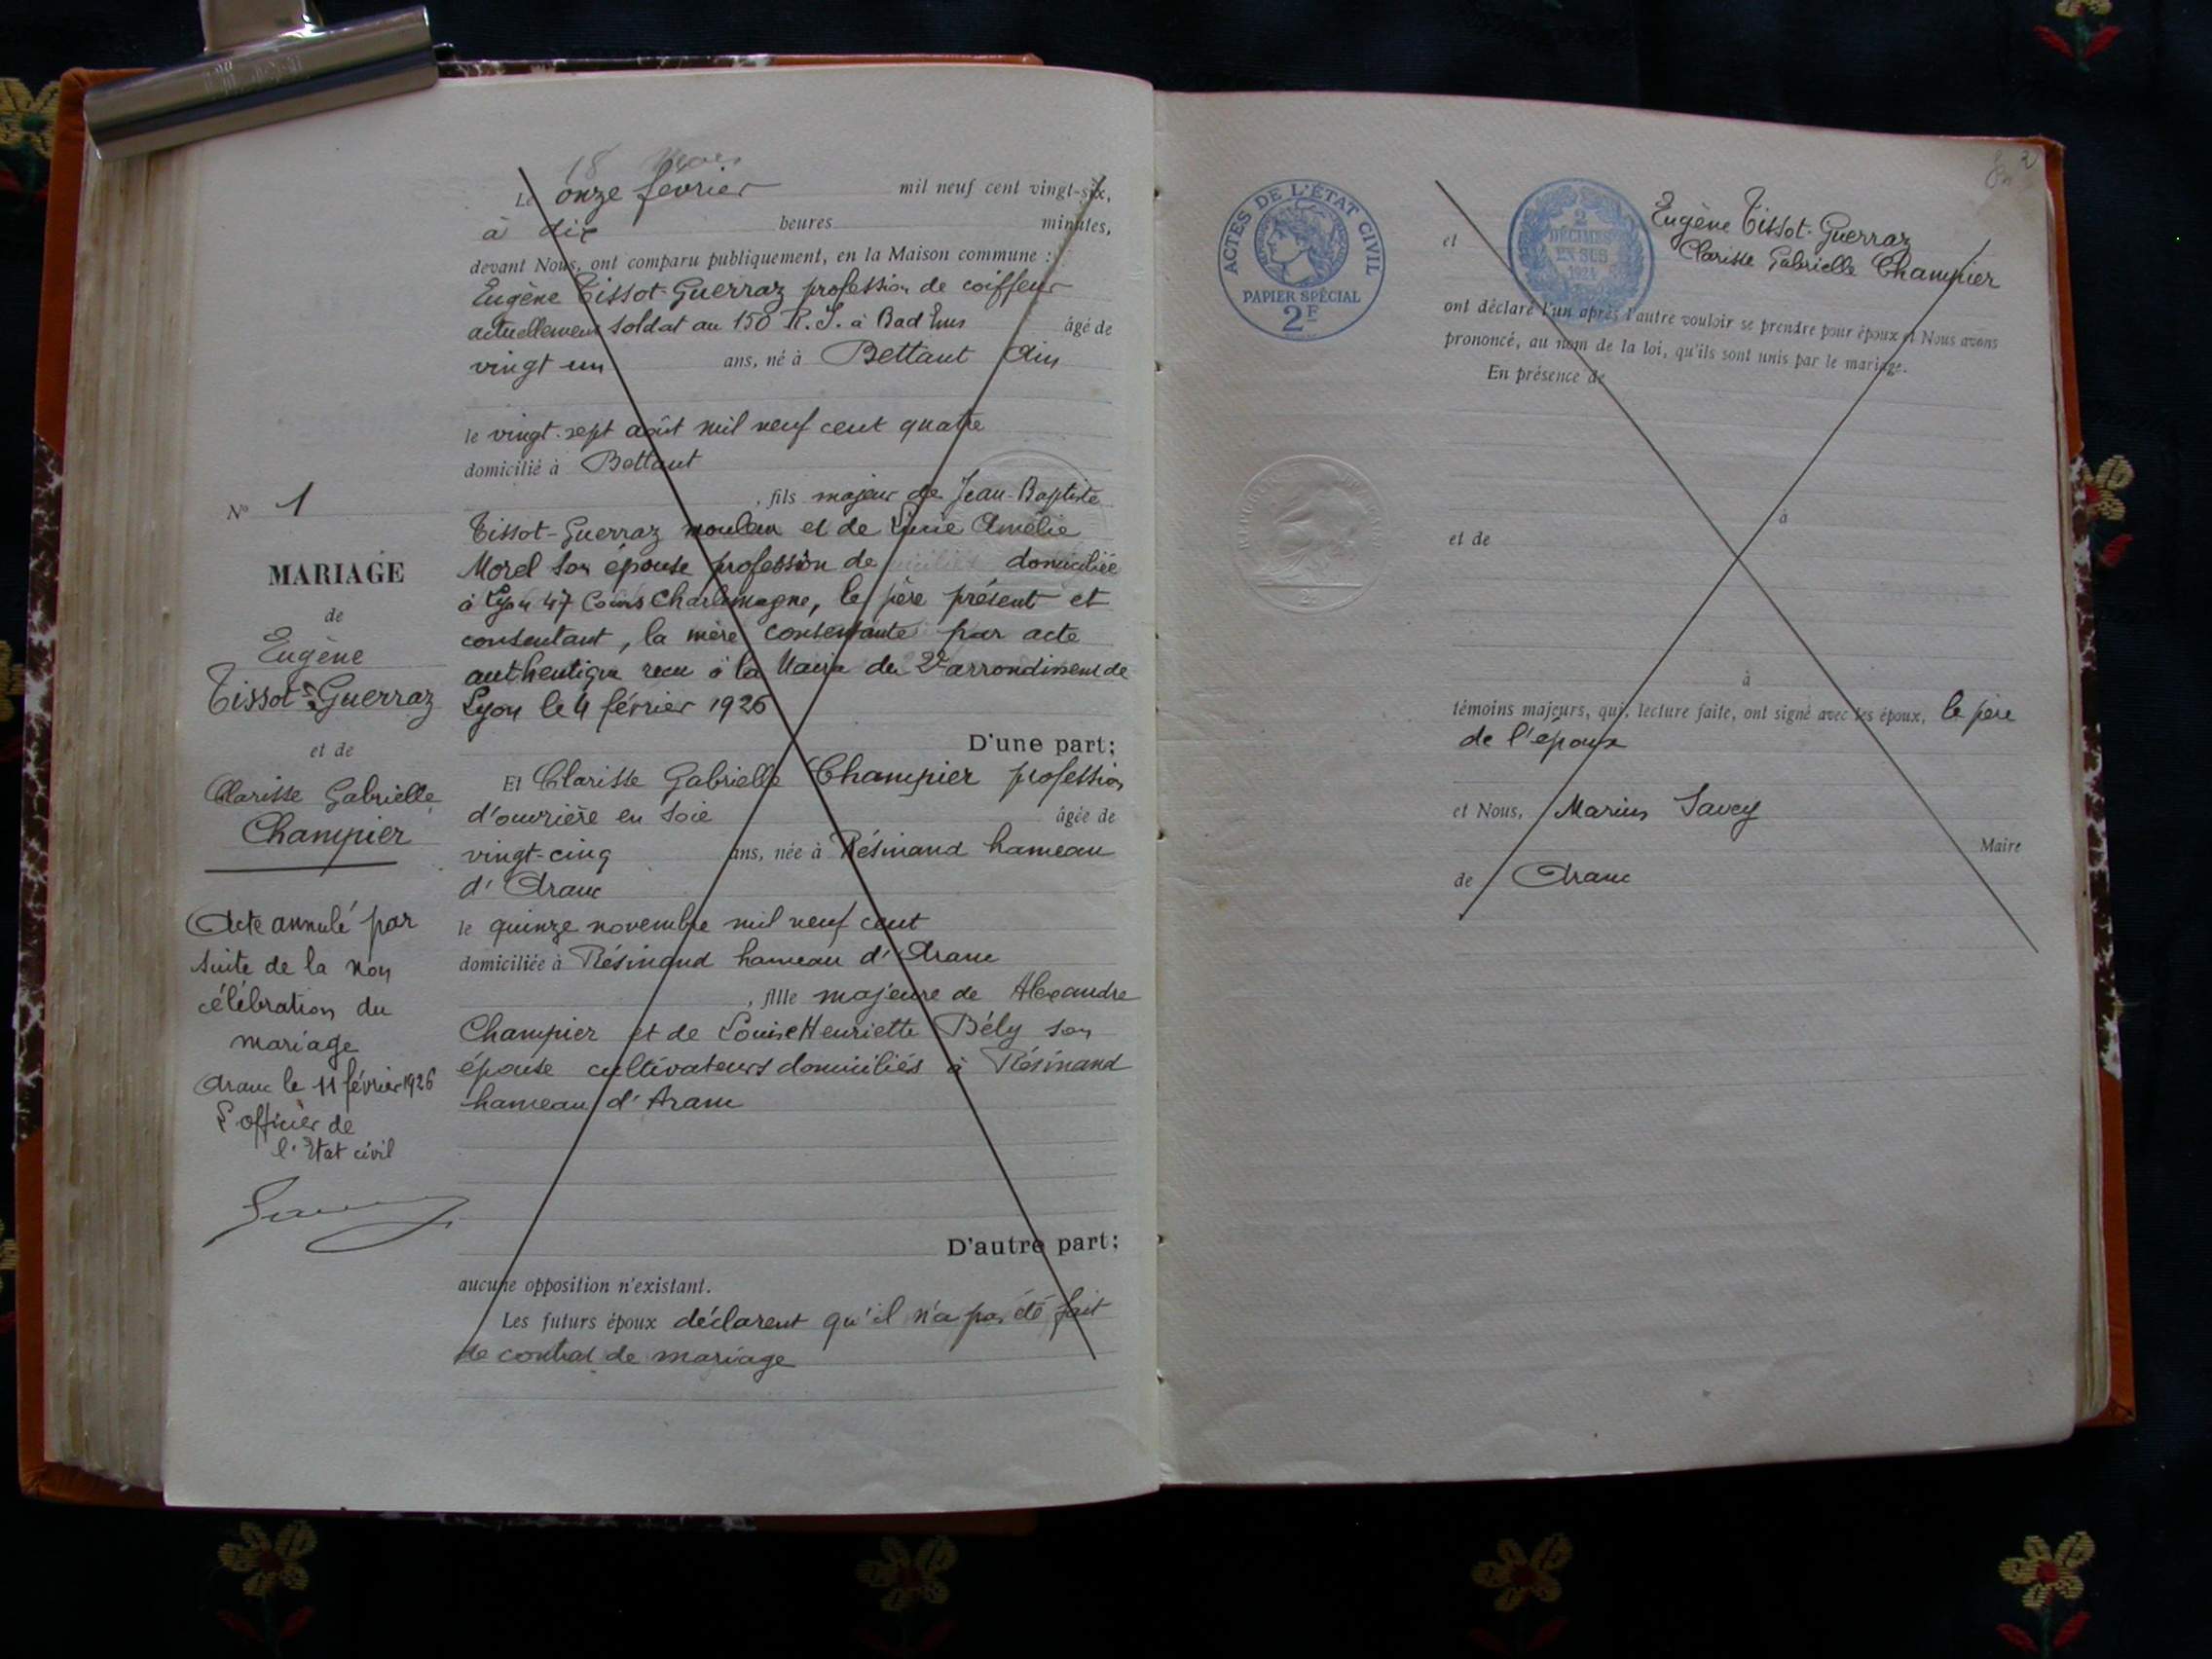 18
Le onze février mil neuf cent vingt-six,
à dix heures minutes,
devant Nous, ont comparu publiquement, en la Maison commune :
Eugène Tissot-Guerraz profession de coiffeur
actuellement soldat au 150 R. I. à Bad Ems âgé de
vingt un ans, né à Bettant Ain
le vingt-sept août mil neuf cent quatre
domicilié à Bettant
, fils majeur de Jean-Baptiste
Tissot-Guerraz et de Amélie
Morel son épouse profession de domiciliée
à Lyon 47 Cours Charlemagne, le père présent et
consentant, la mère consentante par acte
authentique recu à la Mairie du 2e arrondissement de
Lyon le 4 février 1926
D'une part;
Et Clarisse Gabrielle Champier profession
d'ouvrière en soie âgée de
vingt-cinq ans, née à Résinand hameau
d'Aranc
le quinze novembre mil neuf cent
domiciliée à Résinand hameau d'Aranc
, fille majeure de Alexandre
Champier et de Louise Henriette Bély son
épouse cultivateurs domiciliés à Résinand
hameau d'Aranc
D'autre part;
aucune opposition n'existant.
Les futurs époux déclarent qu'il n'a pas été fait
de contrat de mariage
No 1
MARIAGE
de
Eugène
Tissot-Guerraz
et de
Clarisse Gabrielle
Champier
Acte annulé par
suite de la non
célébration du
mariage
Aranc le 11 février 1926
L'officier de
l'Etat civil
ACTES DE L'ÉTAT CIVIL
PAPIER SPÉCIAL
2F
2
DÉCIMES
EN SUS
et Eugène Tissot-Guerraz
Clarisse Gabrielle Champier
ont déclaré l'un après l'autre vouloir se prendre pour époux et Nous avons
prononcé, au nom de la loi, qu'ils sont unis par le mariage.
En présence de
à
et de
à
témoins majeurs, qui, lecture faite, ont signé avec les époux, le père
de l'époux
et Nous, Marius Savey
Maire
de Aranc